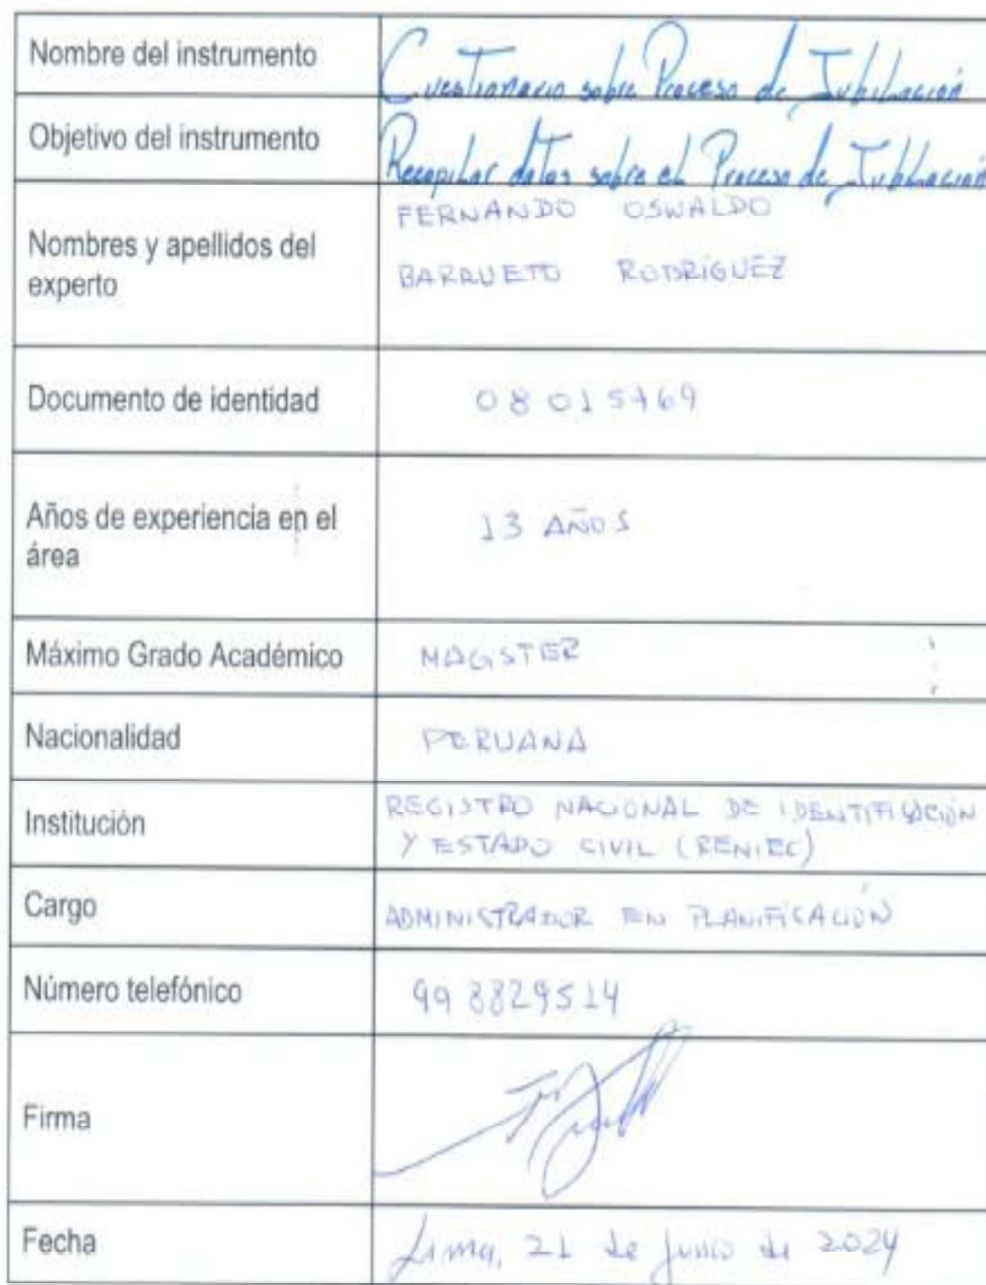 Nombre del instrumento
Cuestionario sobre Proceso de Jubilación
Objetivo del instrumento
Recopilar datos sobre el Proceso de Jubilación
Nombres y apellidos del
experto
FERNANDO OSWALDO
BARRUETO RODRÍGUEZ
Documento de identidad
Años de experiencia en el
área
13 AÑOS
Máximo Grado Académico
MAGSTER
Nacionalidad
PERUANA
Institución
REGISTRO NACIONAL DE IDENTIFICACIÓN
Y ESTADO CIVIL (RENIEC)
Cargo
ADMINISTRADOR EN PLANIFICACIÓN
Número telefónico
Firma
Fecha
Lima, 21 de junio de 2024